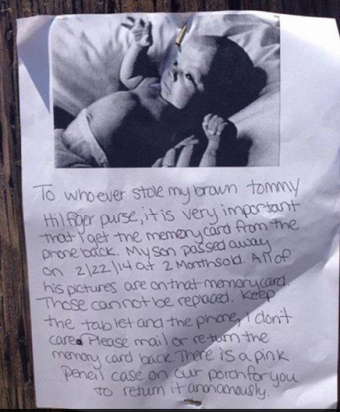 To whoever stole my brown tommy
Hilfiger purse, it is very important
that I get the memory card from the
phone back. My son passed away
on 2/22/14 at 2 Months old. All of
his pictures are on that memory card.
Those cannot be replaced. Keep
the tablet and the phone, I don't
care. Please mail or return the
memory card back. There is a pink
pencil case on our porch for you
to return it anonanously.